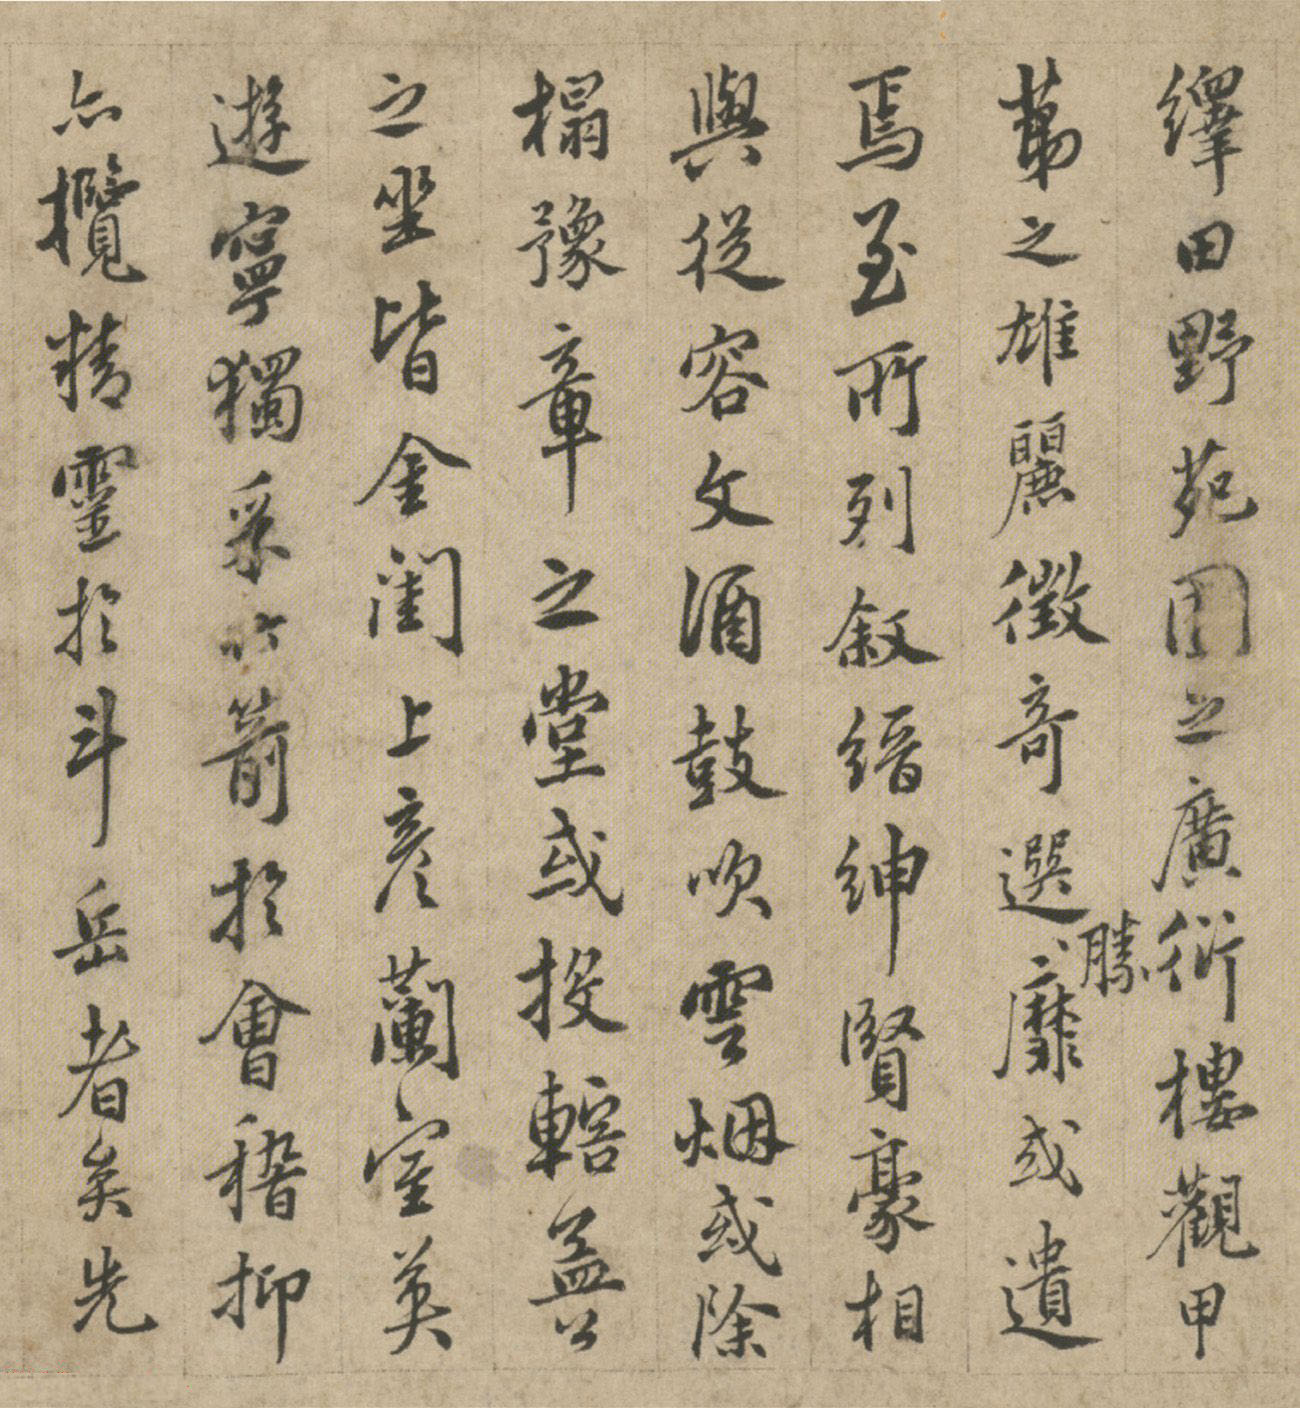 繹田野苑囿之廣衍樓觀甲
苐之雄麗徵奇選勝靡或遺
焉至所列叙縉紳賢豪相
與從容文酒鼓吹雲烟或除
榻豫章之堂或投轄益公
之坐皆金閨上彦蘭室英
遊寧獨采竹箭於會稽抑
亦攬精靈於斗岳者矣先